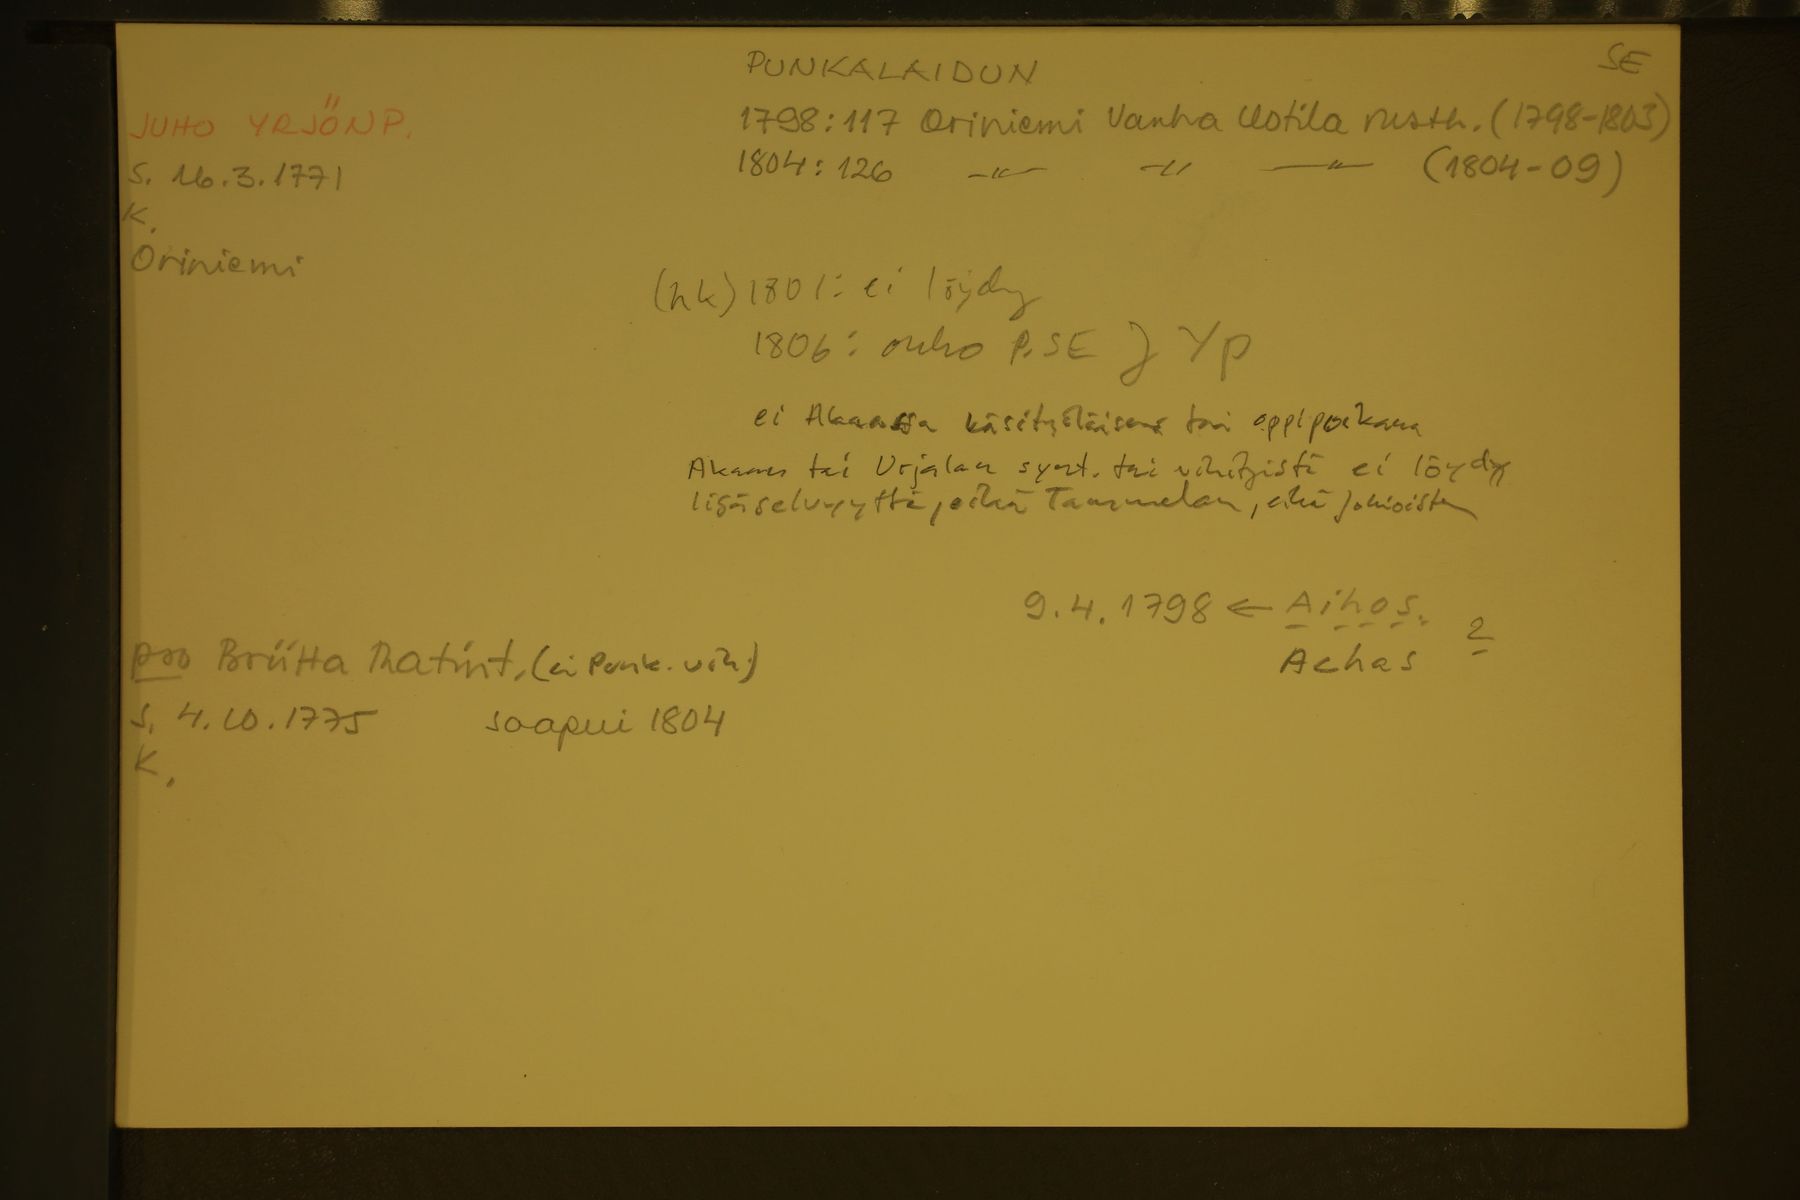 PUNKALAIDUN SE
JUHO YRJÖNP.
1798:117 Oriniemi Vanha Uotila rusth. (1798-1803)
s. 16.3.1771
1804:126 -"- -"- -"- (1804-09)
K.
Oriniemi
(hk) 1801: ei löydy
1806: P. SE } Yp
ei Akaassa käsityöläisenä tai oppipoikana
Akaan tai Urjalan synt. tai vihityistä ei löydy
lisäselvyyttä, eikä Tammelan, eikä Jokioisten
9.4.1798 ← Aihos.
?
Achas
pso Briitta Matint. (ei Punk. vih.)
s. 4.10.1775 saapui 1804
K.